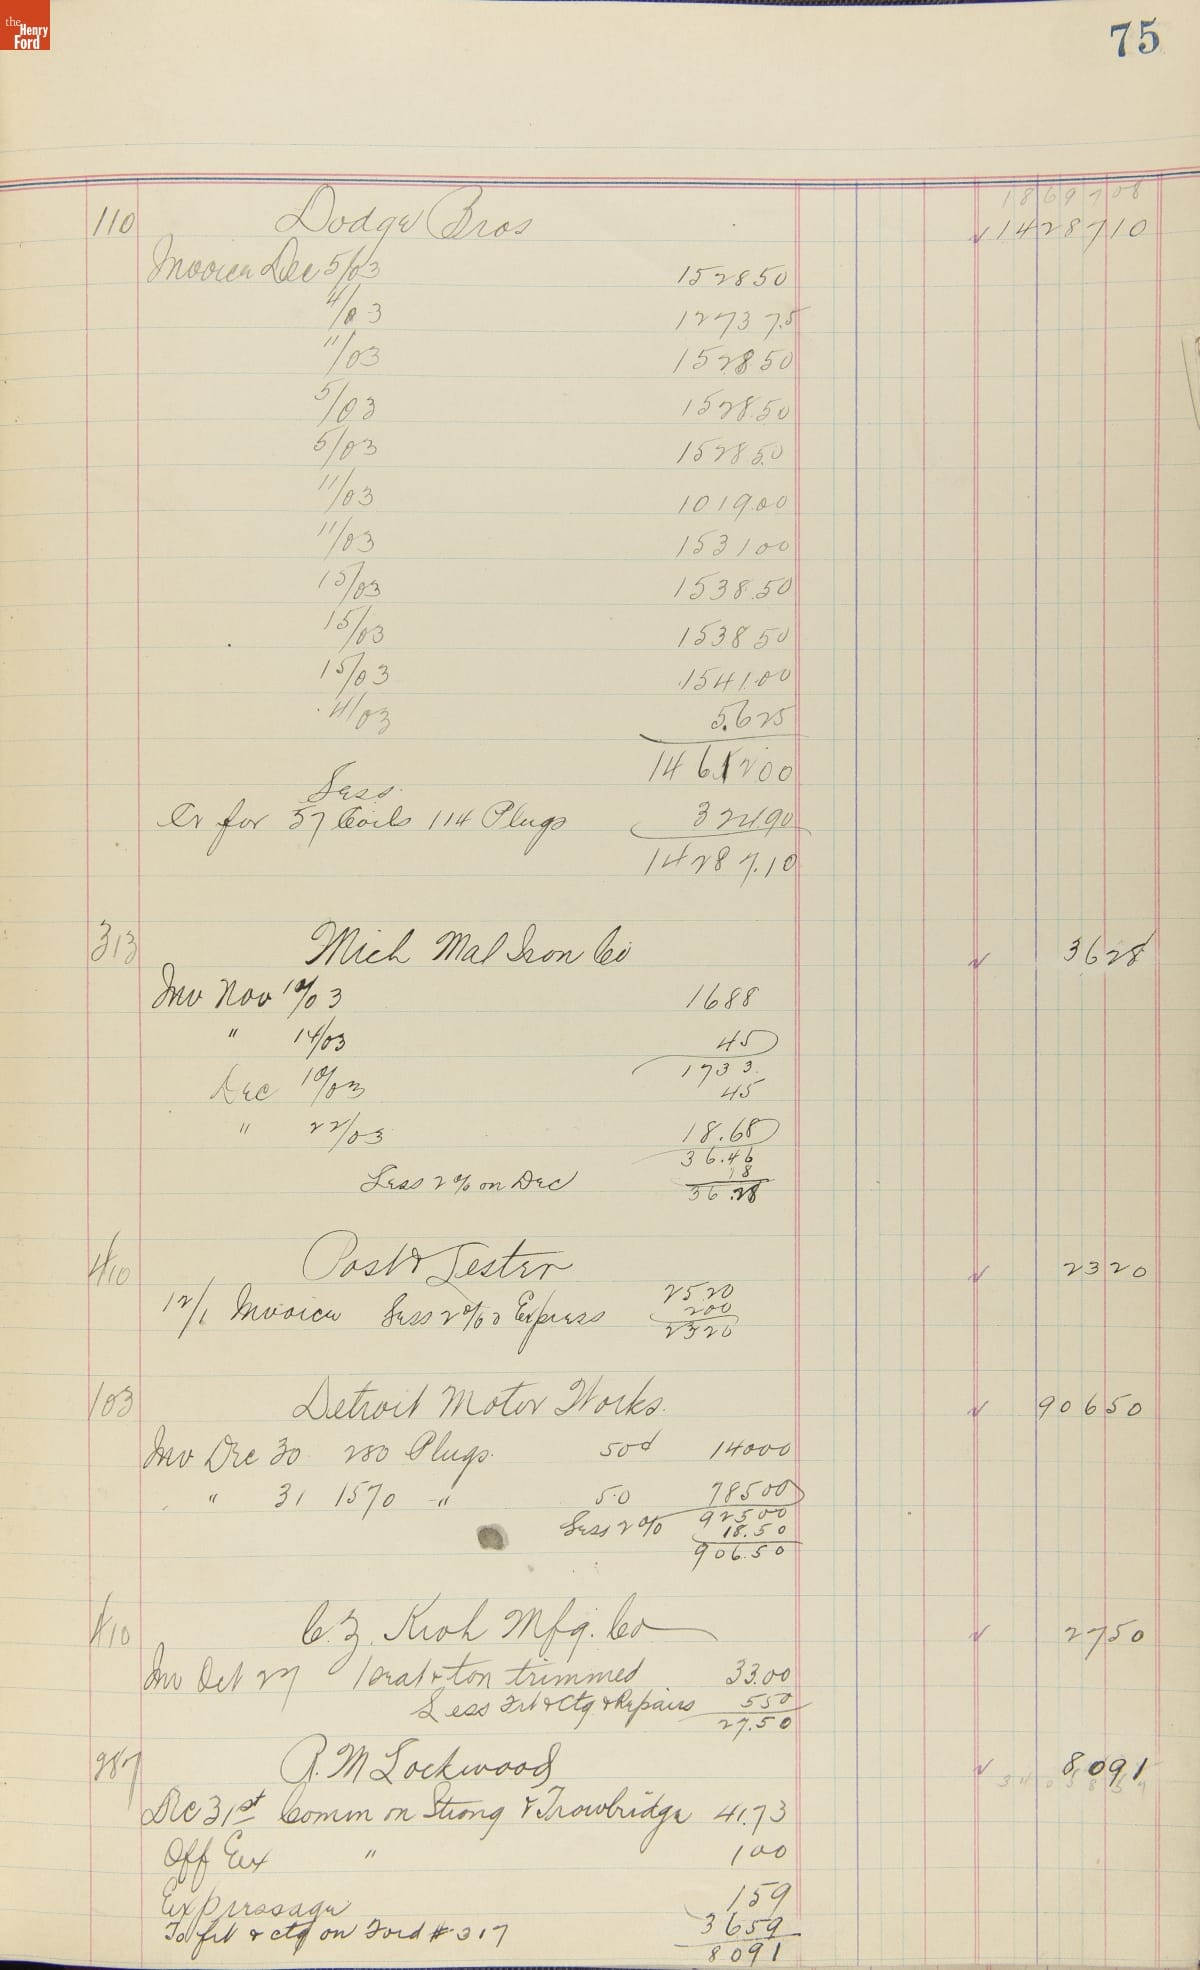 the Henry Ford
75
1869708
110 Dodge Bros √1428710
Invoice Dec 5/03 152850
4/03 127375
11/03 152850
5/03 152850
5/03 152850
11/03 101900
11/03 153100
15/03 153850
15/03 153850
15/03 154100
4/03 5625
1461200
Less
Cr for 57 Coils 114 Plugs 324.90
14287.10
313 Mich Mal Iron Co √ 3628
Inv Nov 10/03 1688
" 14/03 45
1733
Dec 10/03 45
" 22/03 18.68
36.46
18
Less 2% on Dec 36.28
410 Post & Lester √ 2320
12/1 Invoice Less 2% & Express 2520
200
2320
103 Detroit Motor Works. √ 90650
Inv Dec 30 280 Plugs. 50¢ 14000
" 31 1570 " 50 78500
92500
Less 2% 18.50
906.50
410 C. Z. Kroh Mfg. Co √ 2750
Inv Oct 27 1 seat & ton trimmed 33.00
Less Frt & Ctg & Repairs 550
27.50
287 R. M Lockwood √ 8091
Dec 31st Comm on Strong & Trowbridge 41.73
Off Ex " 100
Expressage 159
To frt & ctg on Ford # 317 3659
8091